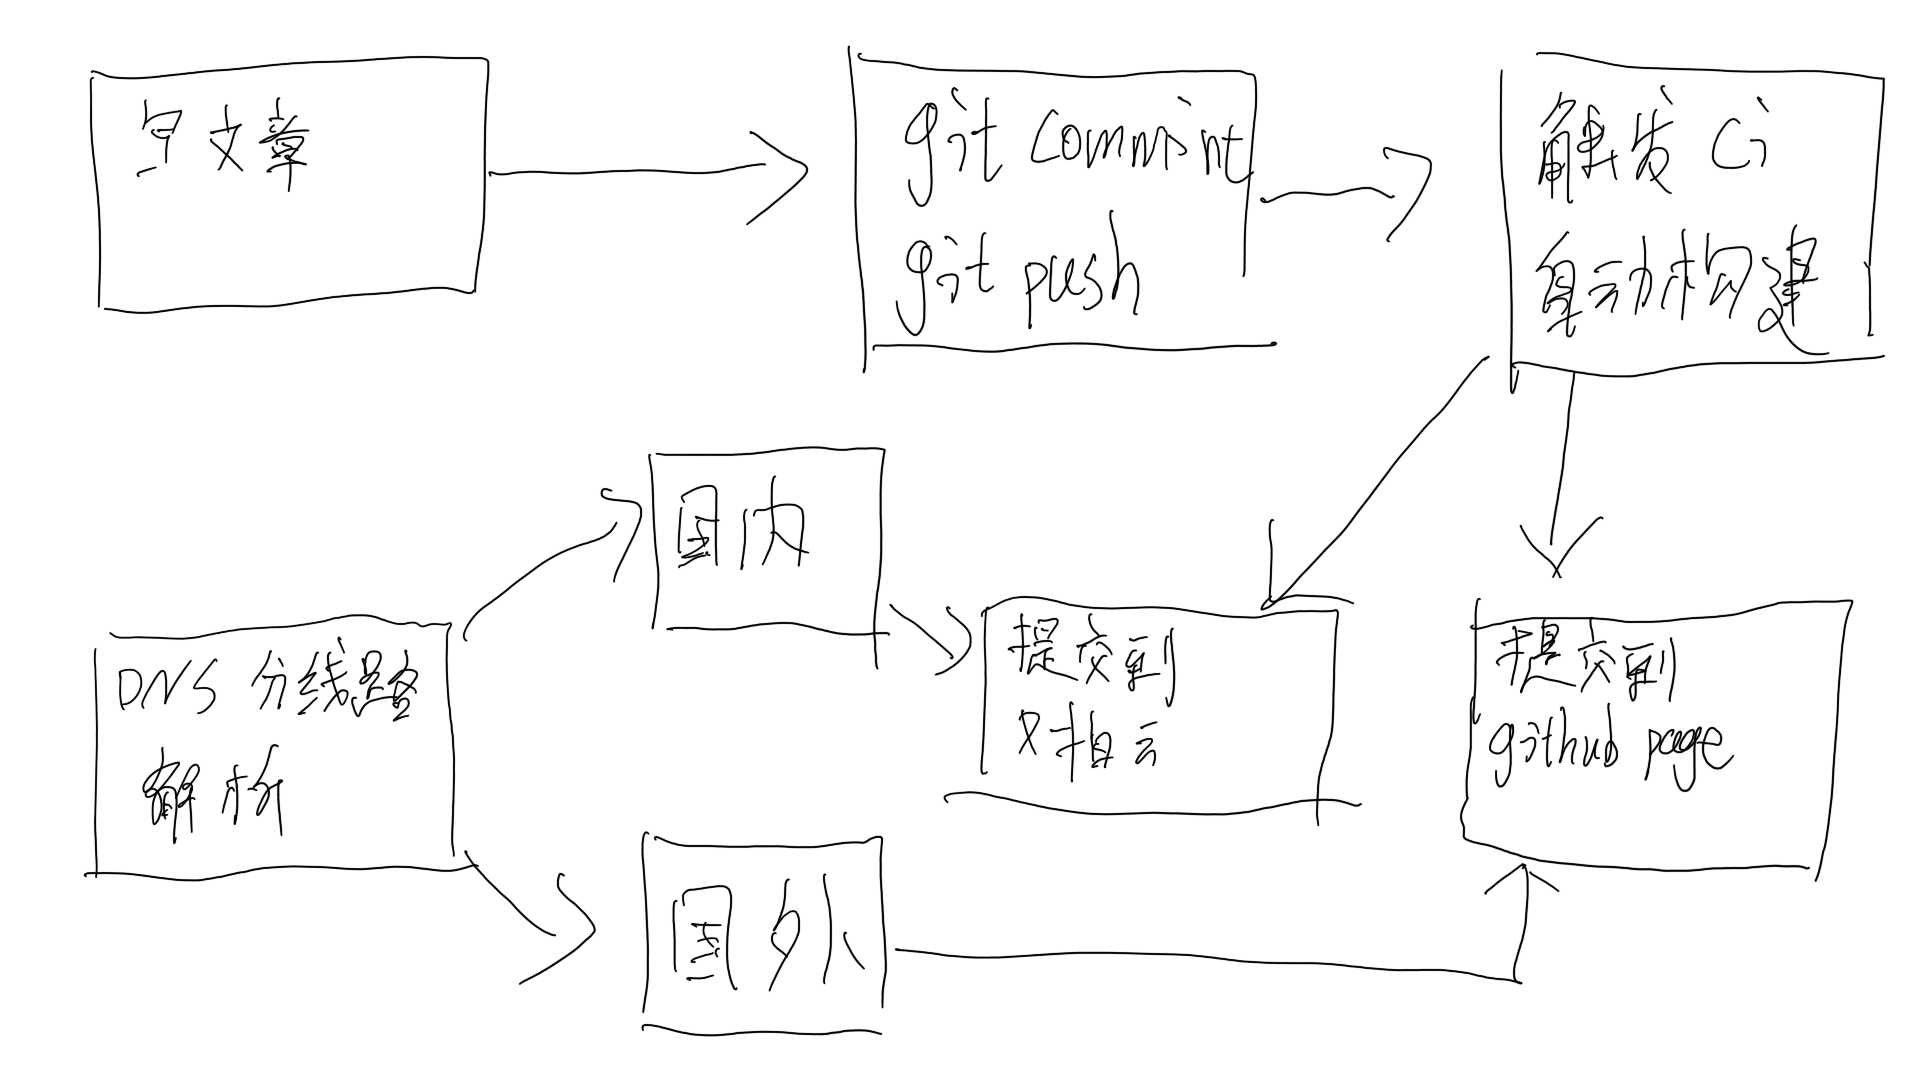 写文章
git commint
git push
触发 Ci
自动构建
国内
DNS 分线路
解析
提交到
又拍云
提交到
github page
国外